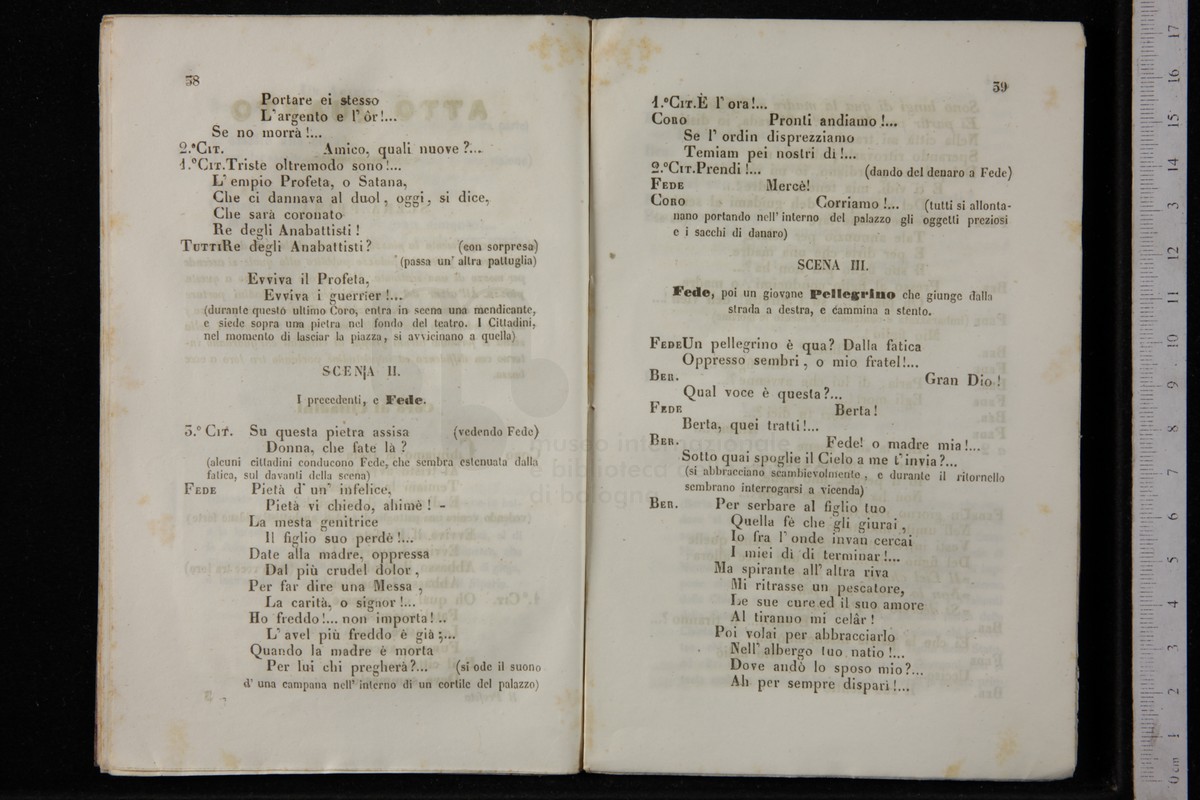 38
Portare ei stesso
L'argento e l'ôr!...
Se no morrà!...
2.° CIT. Amico, quali nuove?...
1.° CIT. Triste oltremodo sono!...
L'empio Profeta, o Satana,
Che ci dannava al duol, oggi, si dice,
Che sarà coronato
Re degli Anabattisti!
TUTTI Re degli Anabattisti? (con sorpresa)
(passa un' altra pattuglia)
Evviva il Profeta,
Evviva i guerrier!...
(durante questo ultimo Coro, entra in scena una mendicante,
e siede sopra una pietra nel fondo del teatro. I Cittadini,
nel momento di lasciar la piazza, si avvicinano a quella)
SCENA II.
I precedenti, e Fede.
3.° CIT. Su questa pietra assisa (vedendo Fede)
Donna, che fate là?
(alcuni cittadini conducono Fede, che sembra estenuata dalla
fatica, sul davanti della scena)
FEDE Pietà d' un' infelice,
Pietà vi chiedo, ahimè! -
La mesta genitrice
Il figlio suo perdè!...
Date alla madre, oppressa
Dal più crudel dolor,
Per far dire una Messa,
La carità, o signor!...
Ho freddo!... non importa!..
L' avel più freddo è già;...
Quando la madre è morta
Per lui chi pregherà?... (si ode il suono
d' una campana nell' interno di un cortile del palazzo)
39
1.° CIT. È l' ora!...
CORO Pronti andiamo!...
Se l' ordin disprezziamo
Temiam pei nostri dì!...
2.° CIT. Prendi!... (dando del denaro a Fede)
FEDE Mercè!
CORO Corriamo!... (tutti si allonta-
nano portando nell' interno del palazzo gli oggetti preziosi
e i sacchi di danaro)
SCENA III.
Fede, poi un giovane Pellegrino che giunge dalla
strada a destra, e cammina a stento.
FEDE Un pellegrino è qua? Dalla fatica
Oppresso sembri, o mio fratel!...
BER. Gran Dio!
Qual voce è questa?...
FEDE Berta!
Berta, quei tratti!...
BER. Fede! o madre mia!...
Sotto quai spoglie il Cielo a me t' invia?...
(si abbracciano scambievolmente, e durante il ritornello
sembrano interrogarsi a vicenda)
BER. Per serbare al figlio tuo
Quella fè che gli giurai,
Io fra l' onde invan cercai
I miei dì di terminar!...
Ma spirante all' altra riva
Mi ritrasse un pescatore,
Le sue cure ed il suo amore
Al tiranno mi celâr!
Poi volai per abbracciarlo
Nell' albergo tuo natio!...
Dove andò lo sposo mio?...
Ah per sempre disparì!...
museo internazionale
e biblioteca
di bologna